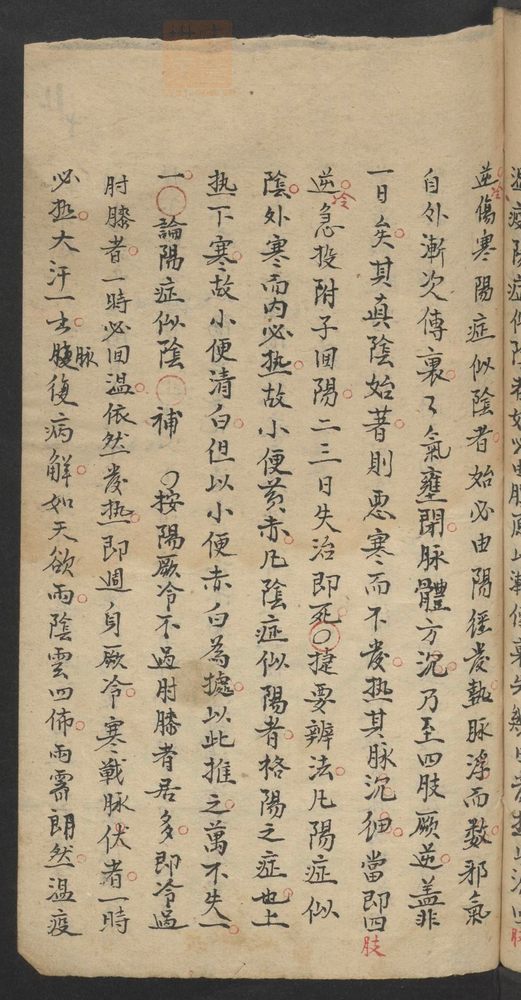 溫疫陽症似陰者始必由膜原以漸傳裏先幾日發熱以後四肢
逆冷傷寒陽症似陰者始必由陽經發熱脉浮而数邪氣
自外漸次傳裏了氣壅閉脉體方沉乃至四肢厥逆盖非
一日矣其真陰始著則恶寒而不發热其脉沉细當即四肢
逆冷急投附子囬陽二三日失治即死〇捷要辨法凡陽症似
陰外寒而内必热故小便黄赤凡陰症似陽者格陽之症也上
热下寒故小便清白但以小便赤白為據以此推之萬不失一
一〇論陽症似陰〇補〇按陽厥冷不過肘膝者居多即冷過
肘膝者一時必囬温依然發热即週身厥冷寒戰脉伏者一時
必热大汗一出脉復病解如天欲雨陰雲四佈雨霽朗然温疫